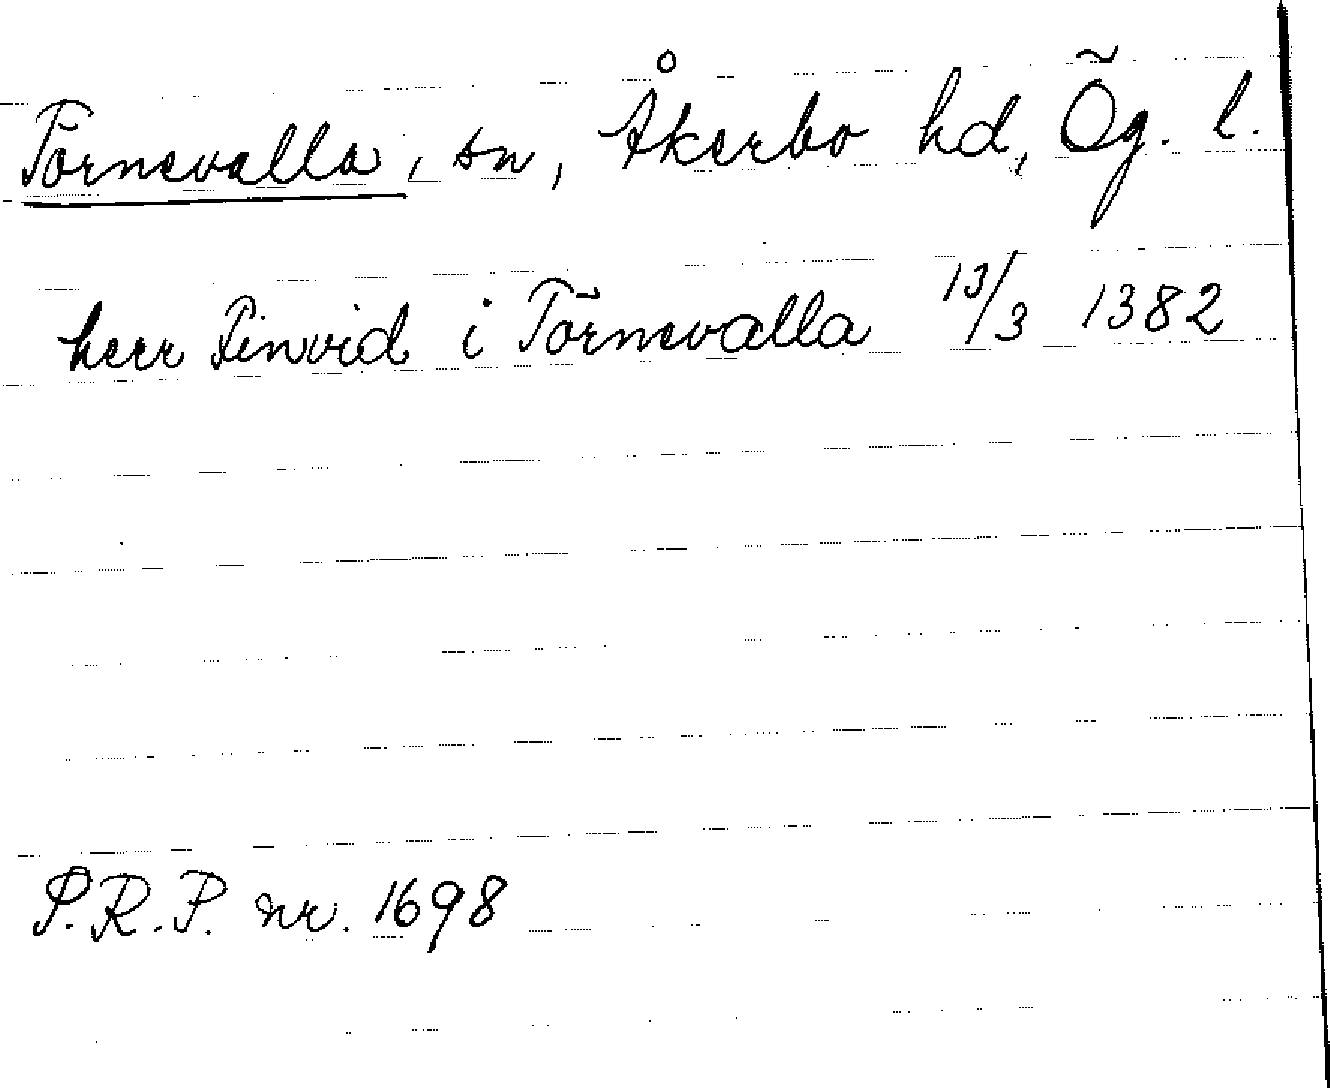 Törnevalla, sn, Åkerbo hd, Ög. l.
herr Finvid i Törnevalla 13/3 1382
P.R.P. nr. 1698